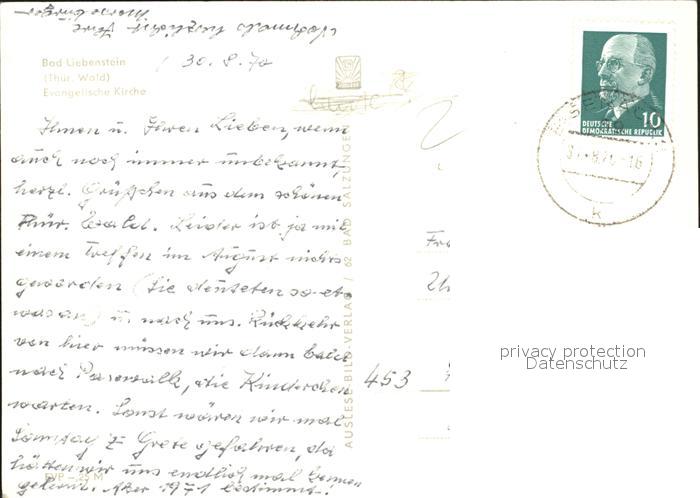 Nochmals herzlichst Ihre
Bad Liebenstein
(Thür. Wald)
Evangelische Kirche
30.8.70
Ihnen u. Ihren Lieben, wenn
auch noch immer unbekannt,
herzl. Grüßchen aus dem schönen
Thür. Wald. Leider ist ja mit
einem Treffen im August nichts
geworden (Sie deuteten so et-
was an) u. nach uns. Rückkehr
von hier müssen wir dann bald
nach Pasewalk, die Kinderchen
warten. Sonst wären wir mal
Samstag z. Grete gefahren, da
hätten wir uns endlich mal kennen
gelernt. Aber 1971 bestimmt!
EVP -,25 M
AUSLESE-BILD-VERLAG / 62 BAD SALZUNGEN
DEUTSCHE
DEMOKRATISCHE REPUBLIK
10
k
Fr
453
privacy protection
Datenschutz